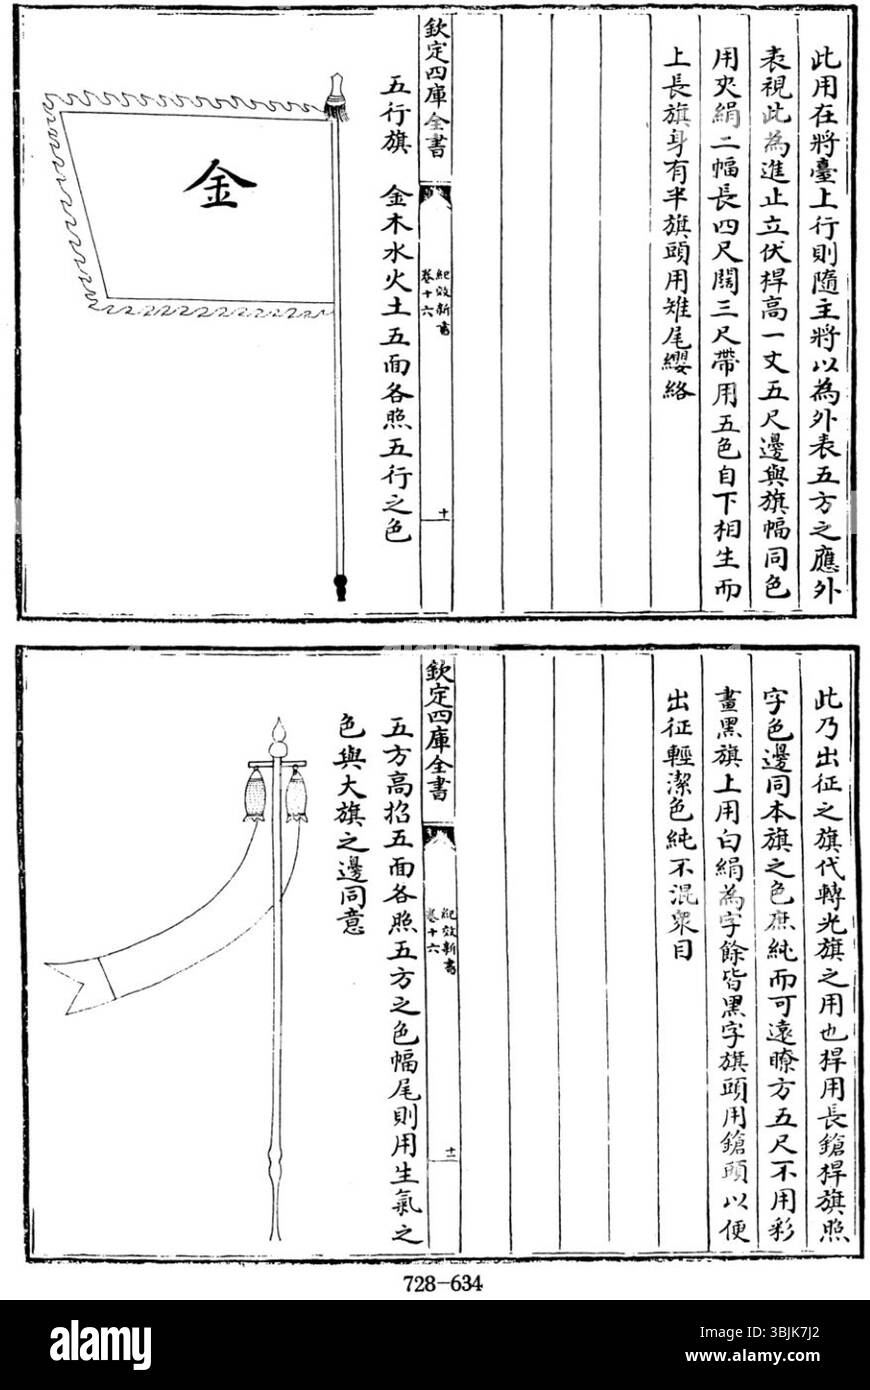 此用在將臺上行則隨主將以為外表五方之應外
表視此為進止立伏桿高一丈五尺邊與旗幅同色
用夾絹二幅長四尺闊三尺帶用五色自下相生而
上長旗身有半旗頭用雉尾纓絡
欽定四庫全書
紀效新書
卷十六
十
五行旗　金木水火土五面各照五行之色
金
此乃出征之旗代轉光旗之用也桿用長鎗桿旗照
字色邊同本旗之色庶純而可遠瞭方五尺不用彩
畫黑旗上用白絹為字餘皆黑字旗頭用鎗頭以便
出征輕潔色純不混衆目
欽定四庫全書
紀效新書
卷十六
十一
五方高招五面各照五方之色幅尾則用生氣之
色與大旗之邊同意
728-634
alamy
Image ID: 3BJK7J2
www.alamy.com